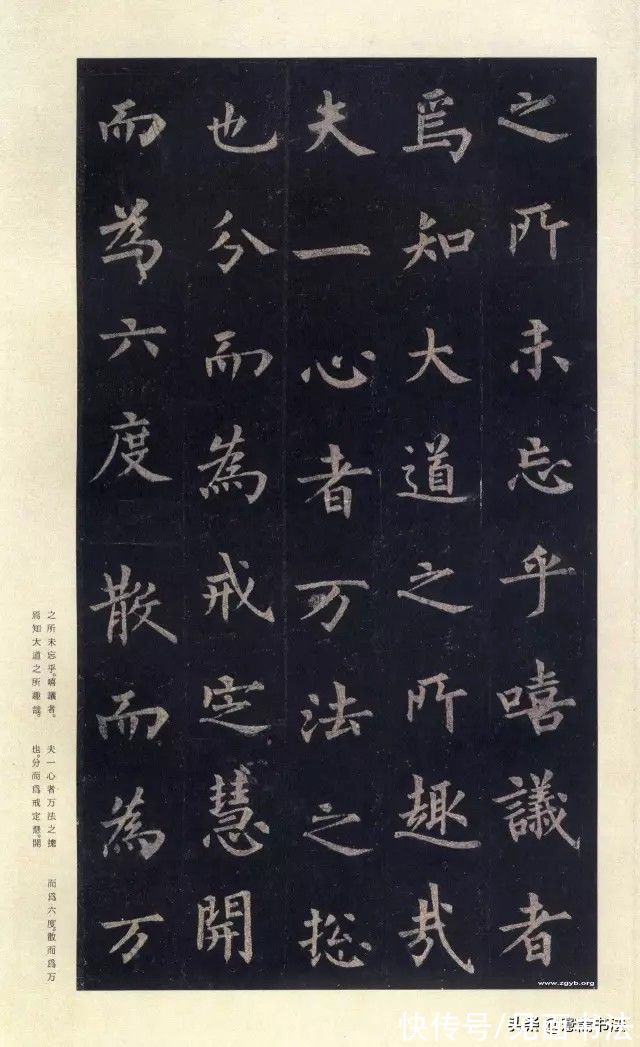 之所未忘乎嘻議者
焉知大道之所趣哉
夫一心者万法之摠
也分而為戒定慧開
而為六度散而為万
之所未忘乎。嘻議者。
焉知大道之所趣哉。
夫一心者万法之摠
也。分而爲戒定慧。開
而爲六度。散而爲万
www.zgyb.org
快传号/见面书法